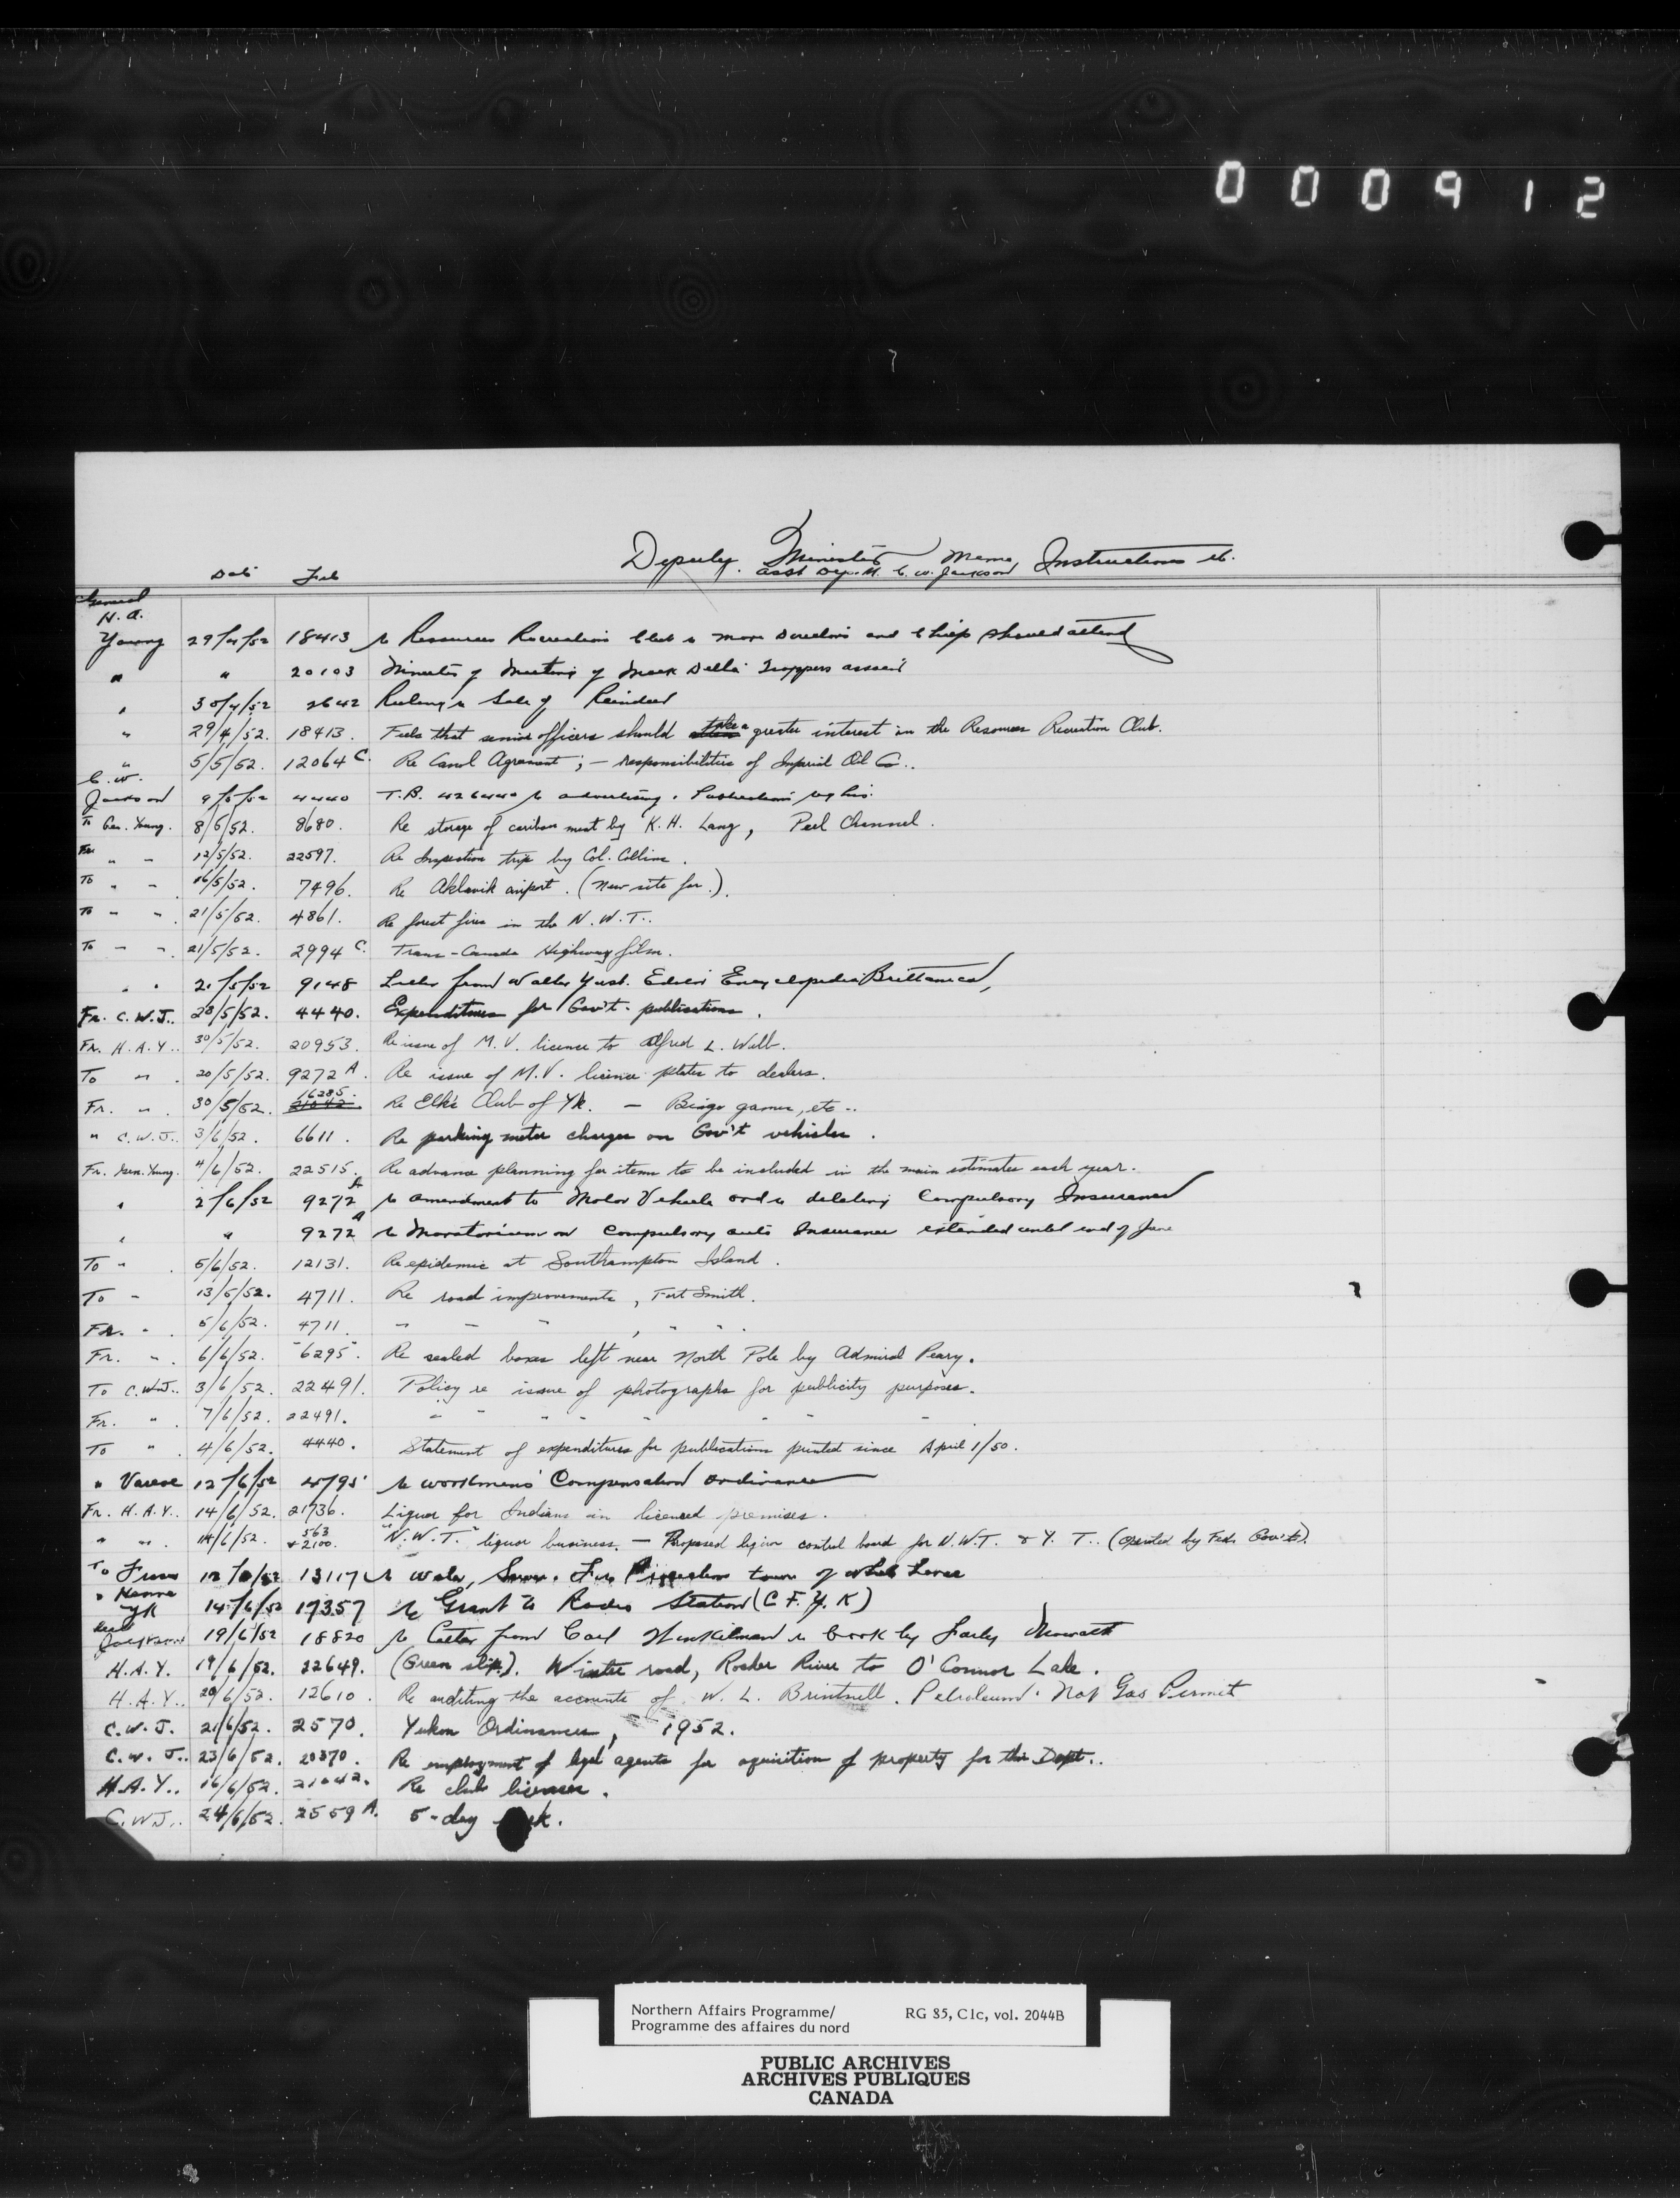 000912
Deputy Minister Memo Instructions
Asst Dep. M. C. W. Jackson
Date File
General
H. A.
Young 29/4/52 18413 re Resources Recreation Club more Directors and Chiefs should attend
" " 20103 Minutes of Meeting of Mack Delta Trappers
" 30/4/52 2642 Sale of Reindeer
" 29/4/52. 18413. Feels that senior officers should take a greater interest in the Resources Recreation Club.
" 5/5/52. 12064 C. Re Canol Agreement; – responsibilities of Imperial Oil Co..
C. W.
Jackson 9/5/52 4440 T.B. 426440 re advertising.
To Gen. Young. 8/5/52. 8680. Re storage of caribou meat by K. H. Lang, Peel Channel.
Fr. " " 12/5/52. 22597. Re Inspection trip by Col. Collins.
To " " 16/5/52. 7496. Re Aklavik airport. (New site for.).
To " " . 21/5/52. 4861. Re forest fires in the N. W. T..
To " " . 21/5/52. 2994 C. Trans-Canada Highway film.
" " 21/5/52 9148 Letter from Walter Yust. Editor Encyclopedia Brittanica,
Fr. C. W. J.. 28/5/52. 4440. Expenditures for Gov't. publications.
Fr. H. A. Y.. 30/5/52. 20953. Re issue of M. V. licence to Alfred L. Webb.
To " . 20/5/52. 9272 A. Re issue of M. V. licence plates to dealers.
Fr. " . 30/5/52. 16285. Re Elk's Club of Yk. — Bingo games, etc..
" C. W. J.. 3/6/52. 6611. Re parking meter charges on Gov't vehicles.
Fr. Gen. Young. 4/6/52. 22515. Re advance planning for items to be included in the main estimates each year.
" 2/6/52 9272 A re amendment to Motor Vehicle ord re deleting Compulsory Insurance
" " 9272 A re Moratorium on Compulsory auto Insurance extended until end of June
To " . 5/6/52. 12131. Re epidemic at Southampton Island.
To " 13/5/52. 4711. Re road improvements, Fort Smith.
Fr. " . 5/6/52. 4711. " " " , " " .
Fr. " . 6/6/52. "6295". Re sealed boxes left near North Pole by Admiral Peary.
To C. W. J.. 3/6/52. 22491. Policy re issue of photographs for publicity purposes.
Fr. " . 7/6/52. 22491. " " " " " " " "
To " . 4/6/52. 4440. Statement of expenditures for publications printed since April 1/50.
" 12/6/52 4795 re workmens' Compensation ordinance
Fr. H. A. Y.. 14/6/52. 21736. Liquor for Indians in licensed premises.
" " . 14/6/52. 563 & 2100. "N. W. T." liquor business. — Proposed liquor control board for N. W. T. & Y. T.. (Operated by Fed. Gov't).
To 12/6/52 13117 re Water, Sewer. Fire Protection town of White Horse
YK 14/6/52 17357 re Grant to Radio Station (C F. Y. K)
Jackson 19/6/52 18820 re Letter from Carl re book by Farley Mowatt
H. A. Y. 19/6/52. 22649. (Green slip). Winter road, Rocher River to O'Connor Lake.
H. A. Y.. 20/6/52. 12610. Re auditing the accounts of W. L. Brintnell. Petroleum & Nat Gas Permit
C. W. J. 21/6/52. 2570. Yukon Ordinances, 1952.
C. W. J.. 23/6/52. 20370. Re employment of legal agents for aquisition of property for this Dept..
H. A. Y.. 16/6/52. 21042. Re club licences.
C. W. J.. 24/6/52. 2559 A. 5-day
Northern Affairs Programme/
Programme des affaires du nord
RG 85, C1c, vol. 2044B
PUBLIC ARCHIVES
ARCHIVES PUBLIQUES
CANADA